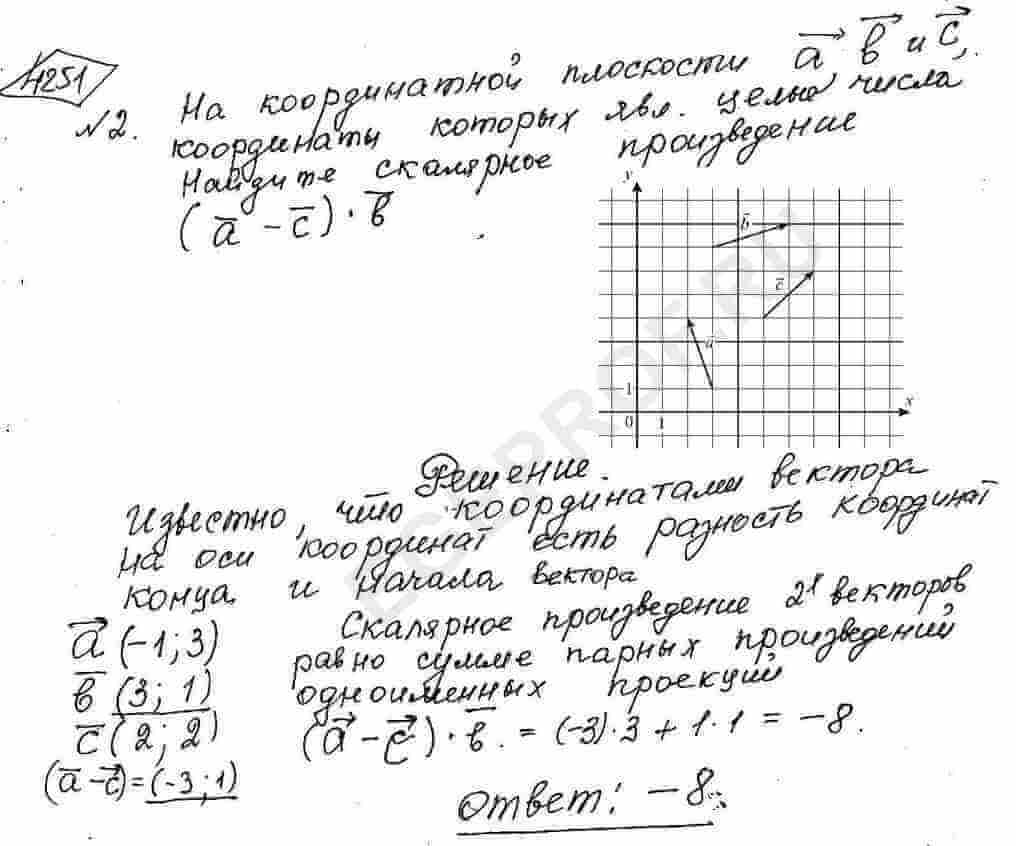 4251
№2. На координатной плоскости a, b и c,
координаты которых явл. целые числа
Найдите скалярное произведение
(a - c) · b
y
b
c
a
1
x
0 1
LCSPROF.RU
Решение.
Известно, что координатами вектора
на оси координат есть разность координат
конца и начала вектора
a (-1; 3)
b (3; 1)
c (2; 2)
(a - c) = (-3; 1)
Скалярное произведение 2х векторов
равно сумме парных произведений
одноименных проекций
(a - c) · b = (-3)·3 + 1·1 = -8.
Ответ: -8.